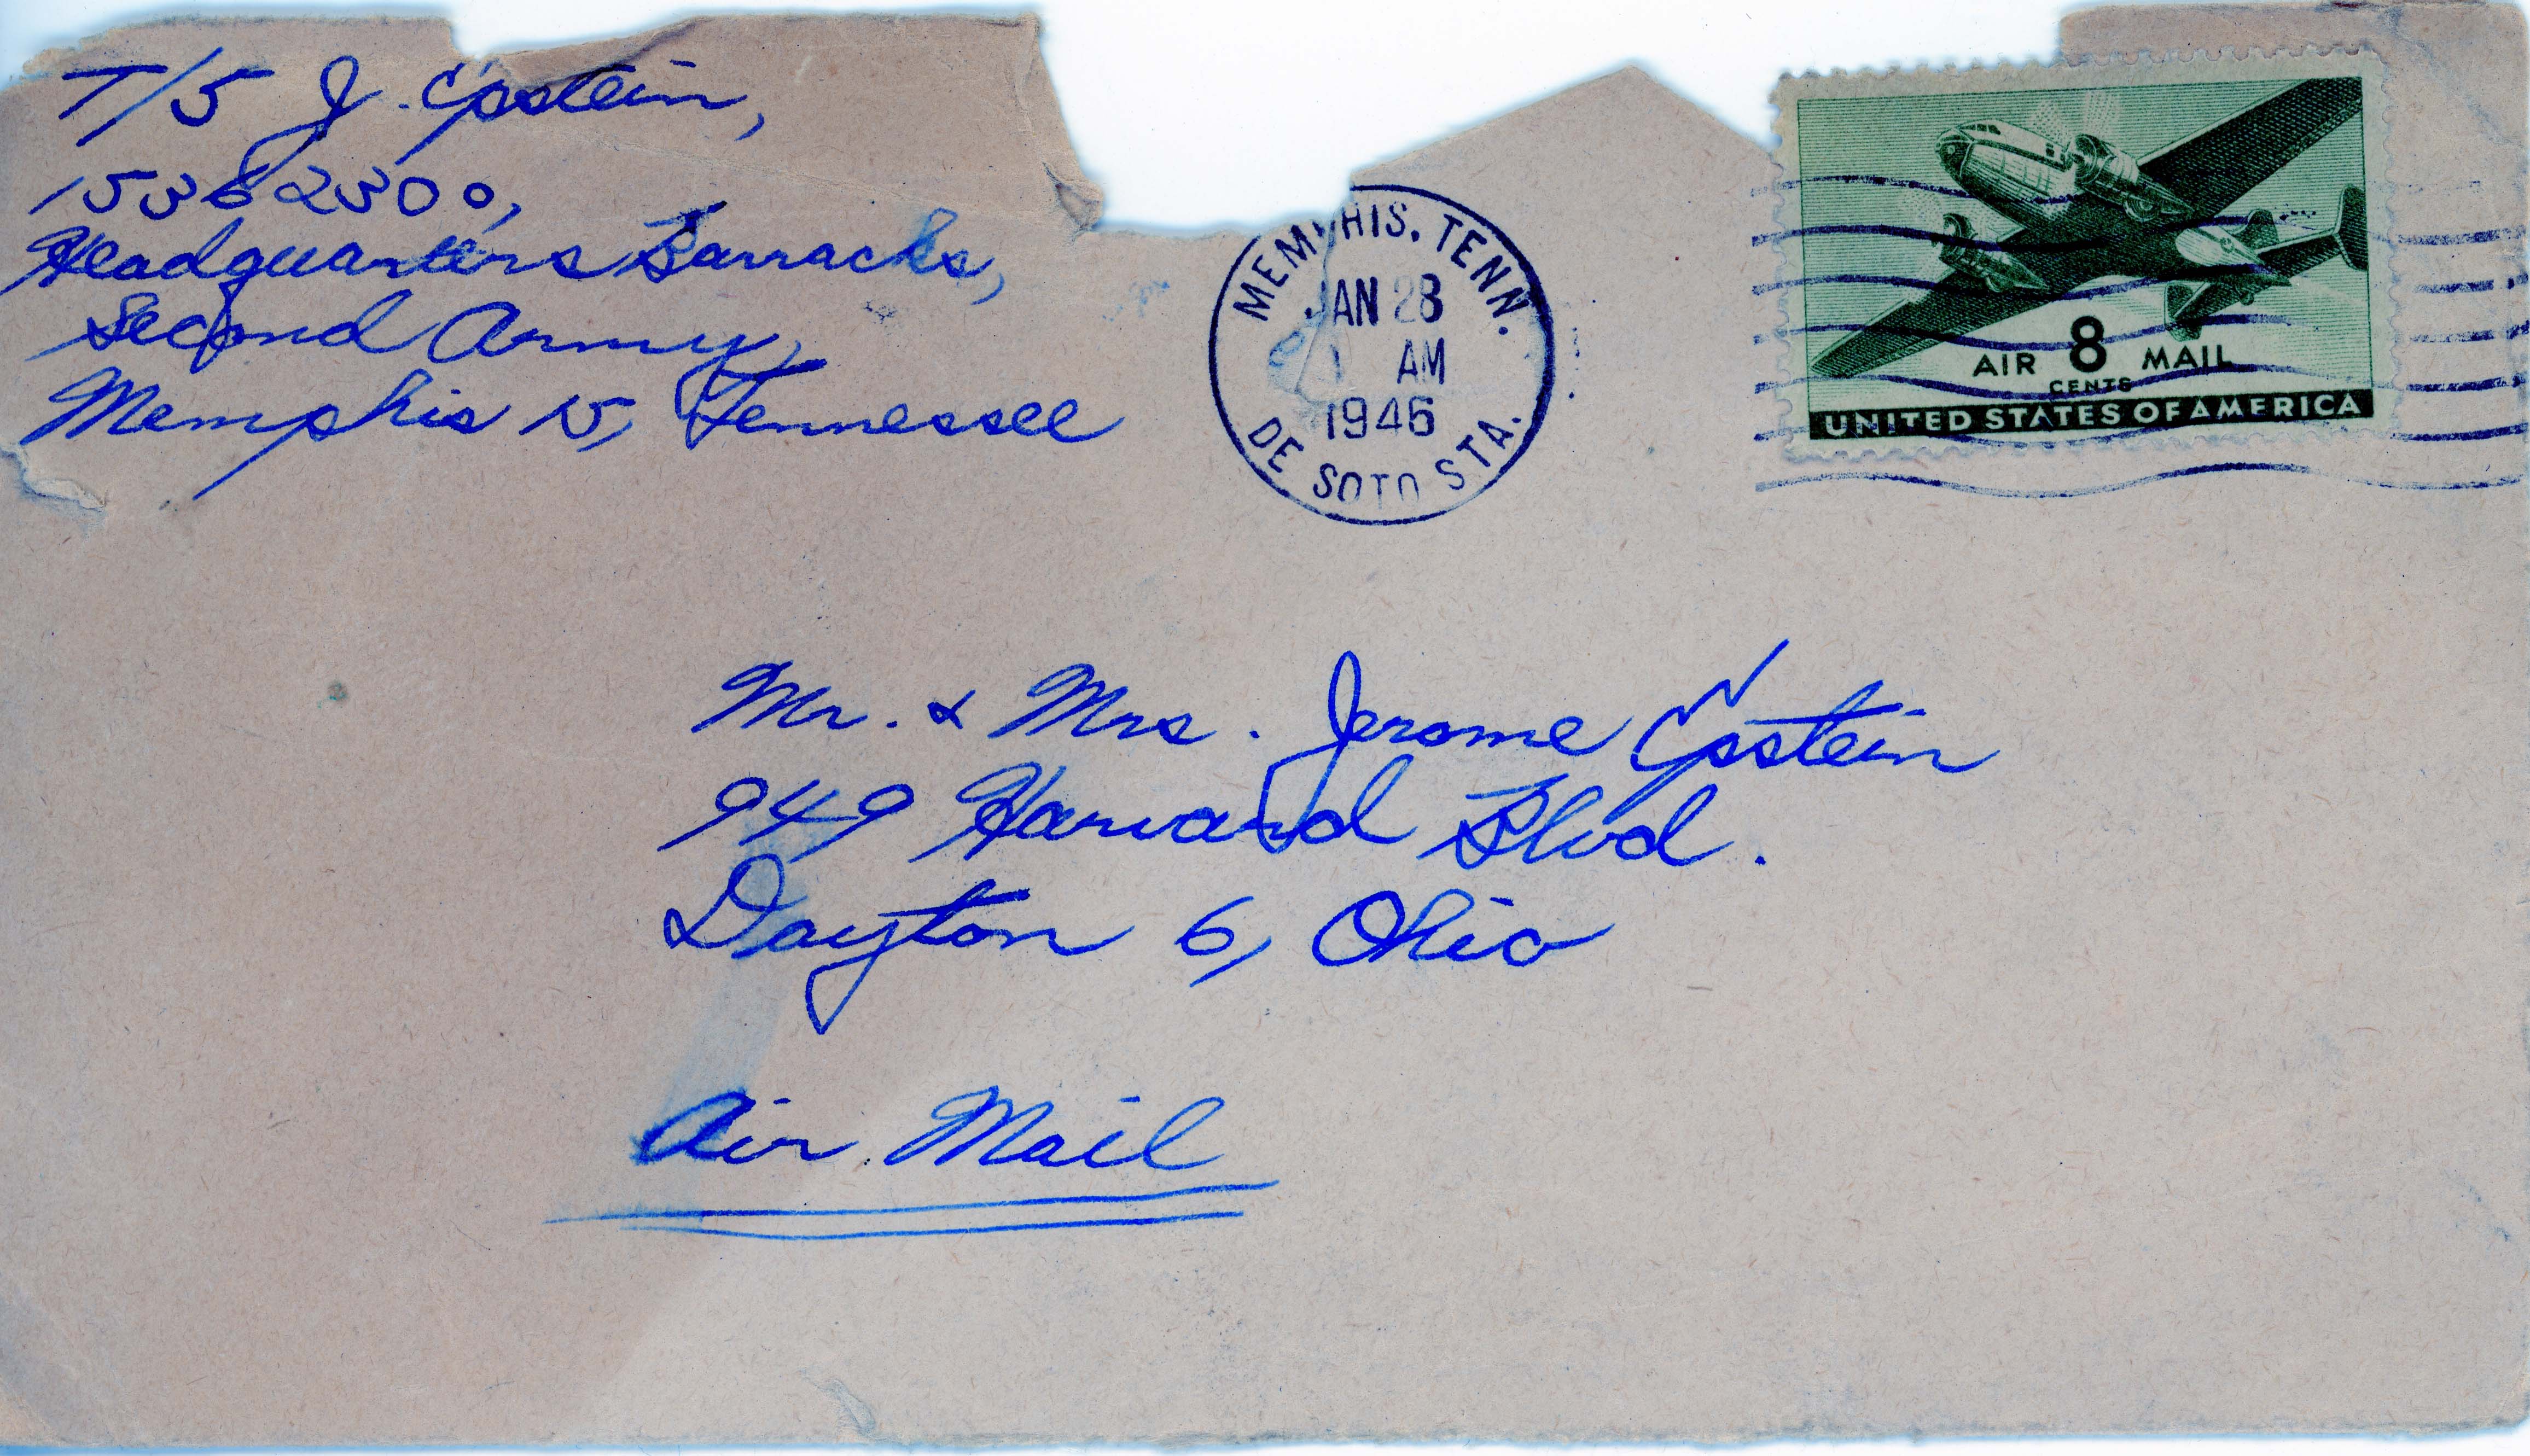 T/5 J. Epstein,
15362300,
Headquarters Barracks,
Second Army,
Memphis 15, Tennessee
MEMPHIS, TENN.
JAN 28
AM
1946
DE SOTO STA.
AIR 8 MAIL
CENTS
UNITED STATES OF AMERICA
Mr. & Mrs. Jerome Epstein
949 Harvard Blvd.
Dayton 6, Ohio
Air Mail